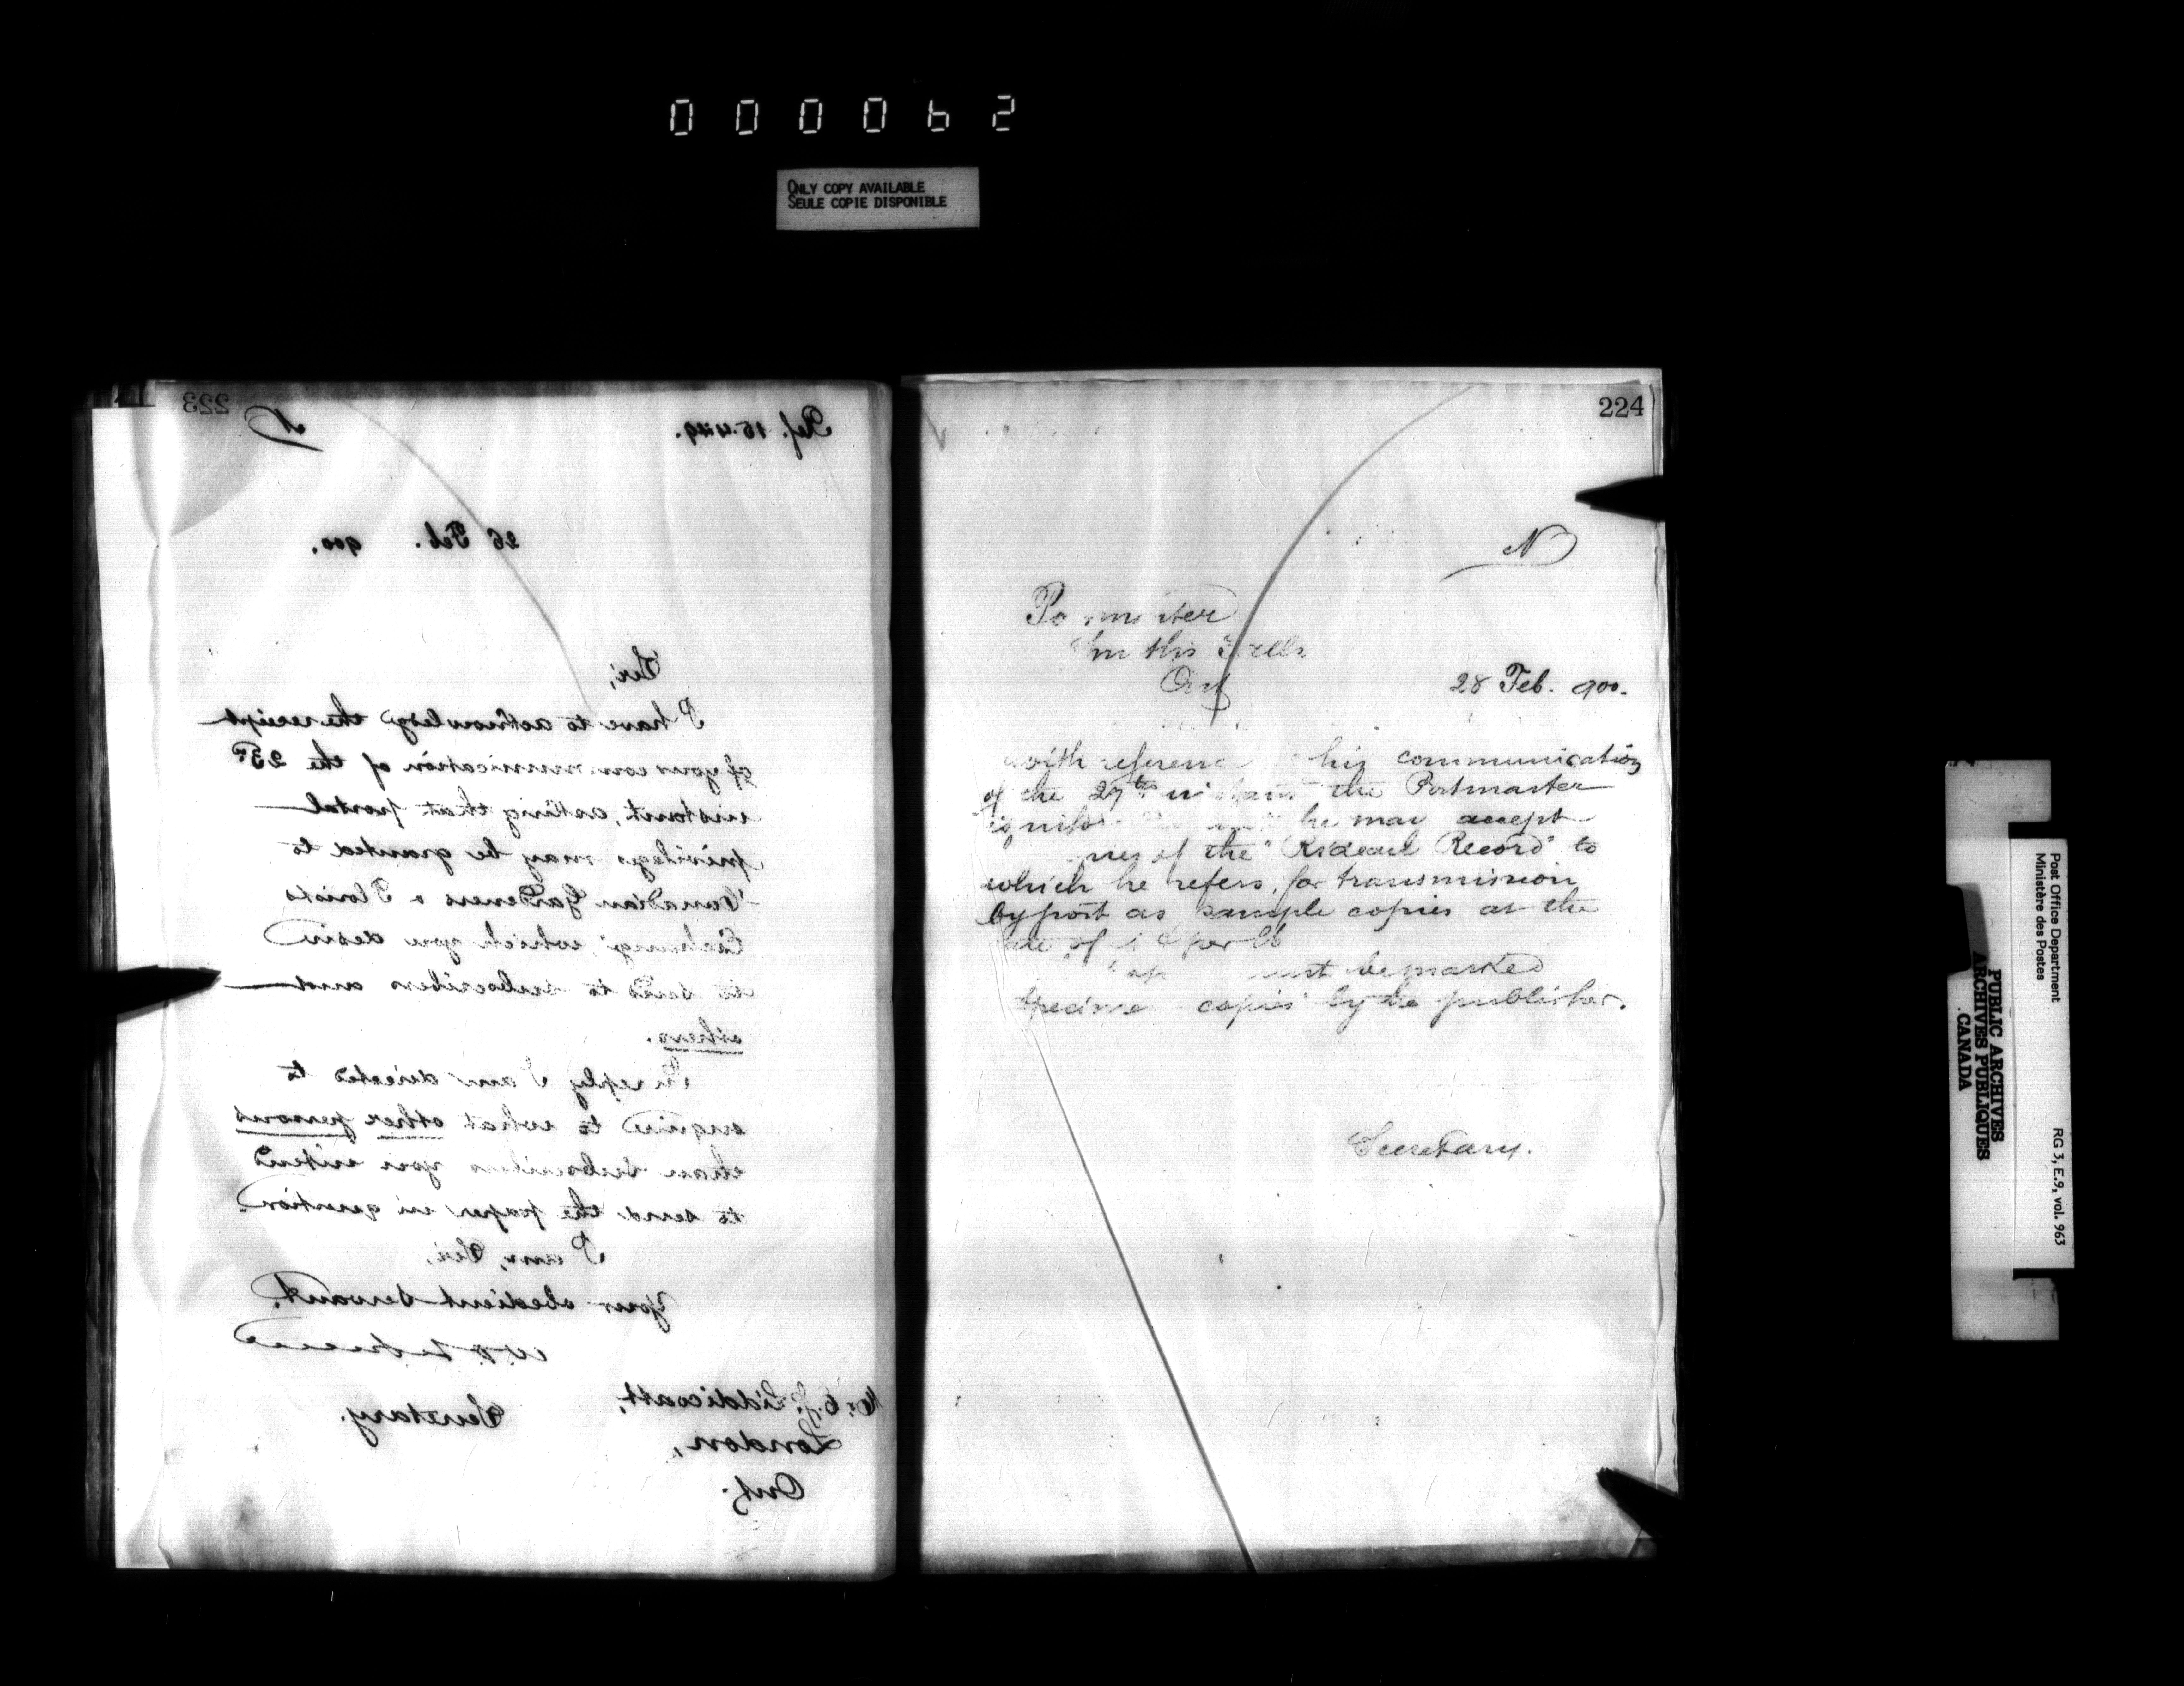 000062
ONLY COPY AVAILABLE
SEULE COPIE DISPONIBLE
223
Ref. 15.4.49.
N
26 Feb. 900.
Sir,
I have to acknowledge the receipt
of your communication of the 23rd
instant, asking that postal
privileges may be granted to
"Canadian Gardeners & Florists
Exchange", which you desire
to send to subscribers and
others.
In reply I am directed to
enquire to what other persons
than subscribers you intend
to send the paper in question.
I am, Sir,
Your obedient Servant.
Secretary.
Mr. C. J. Liddicoatt,
London,
Ont.
224
N
Po m ster
Smiths Falls
Ont
28 Feb. 900.
with reference his communication
of the 27th instant the Postmaster
is he may accept
of the "Rideau Record" to
which he refers, for transmission
by post as sample copies at the
rate of per lb
must be marked
specimen copies by the publisher.
Secretary.
Post Office Department
Ministère des Postes
RG 3, E.9, vol. 963
PUBLIC ARCHIVES
ARCHIVES PUBLIQUES
CANADA